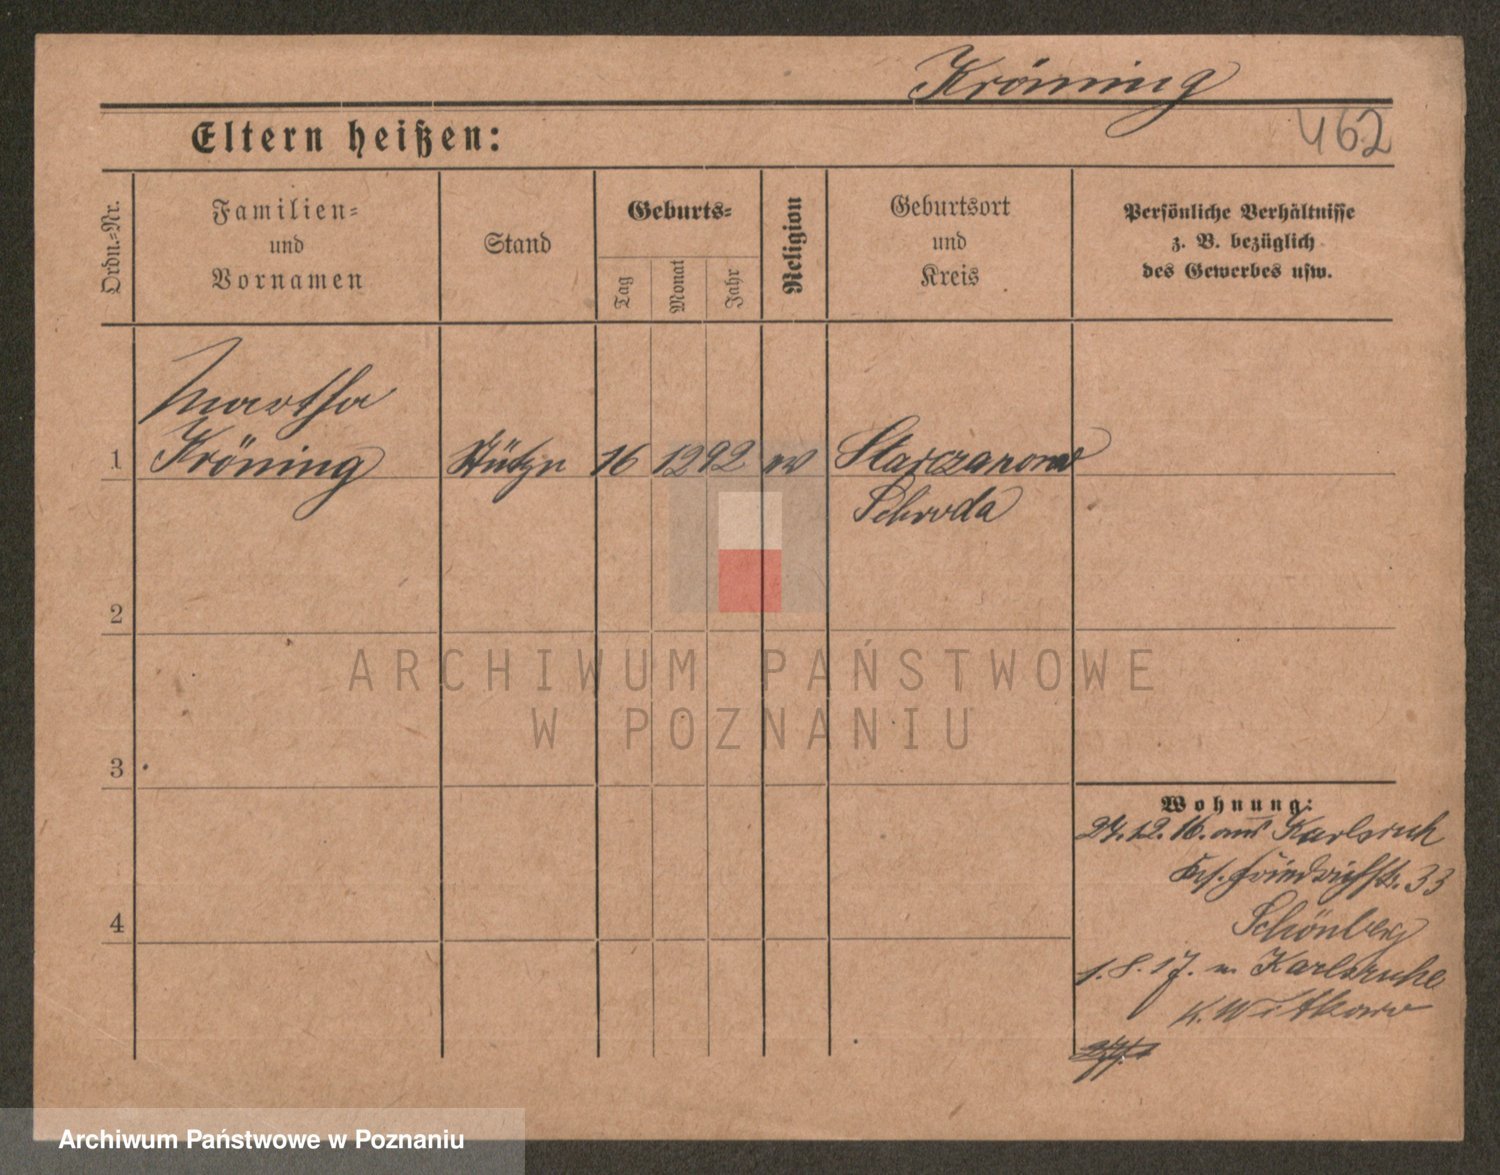 Kröning
462
Eltern heißen:
Ordn.=Nr.
Familien=
und
Vornamen
Stand
Geburts=
Tag
Monat
Jahr
Religion
Geburtsort
und
Kreis
Persönliche Verhältnisse
z. B. bezüglich
des Gewerbes usw.
Martha
1 Kröning Stütze 16 12 92 ev Starczanowo
Schroda
2
ARCHIWUM PAŃSTWOWE
W POZNANIU
3
Wohnung:
24.12.16. aus Karlsruh
Friedrichstr. 33
4
Schönberg
1.8.17. n Karlsruhe
K. Witkowo
Archiwum Państwowe w Poznaniu